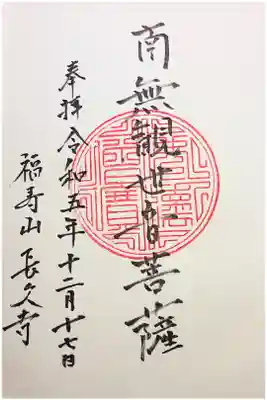 南無觀世音菩薩
奉拝 令和五年十二月十七日
福寿山 長久寺